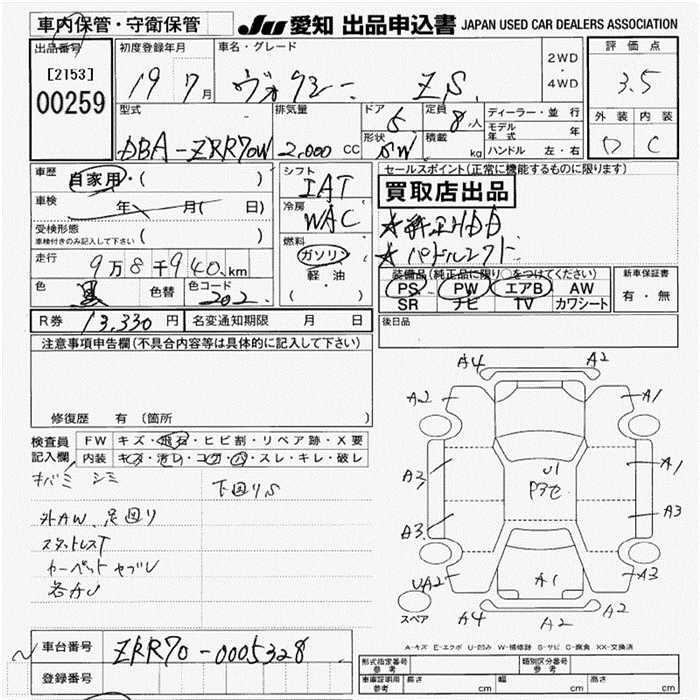 車内保管・守衛保管
JU 愛知 出品申込書 JAPAN USED CAR DEALERS ASSOCIATION
出品番号
[2153]
00259
初度登録年月
19 7月
車名・グレード
ヴォクシー ZS
2WD・4WD
評価点
3.5
外装 内装
D C
型式
DBA-ZRR70W
排気量
2,000 CC
ドア
5
定員
8人
形状
SW
積載
kg
ディーラー・並行
モデル年式 年
ハンドル 左・右
車歴
自家用・( )
車検
年 月( 日)
受検形態
車検付きのみ記入して下さい ( )
走行
9万8千940km
色
黒
色替
色コード
202
シフト
IAT
冷房
WAC
燃料
ガソリン
軽・油
( ・ )
セールスポイント(正常に機能するものに限ります)
買取店出品
☆純正HDD
☆パドルシフト
装備品(純正品に限り○をつけてください)
PS PW エアB AW
SR ナビ TV カワシート
新車保証書
有・無
R券 13,330円
名変通知期限 月 日
後日品
注意事項申告欄(不具合内容等は具体的に記入して下さい)
修復歴 有 (箇所 )
検査員記入欄
FW キズ・飛石・ヒビ割・リペア跡・X要
内装 キズ・汚レ・コゲ・穴・スレ・キレ・破レ
キバミ シミ
下回りS
外AW、足回り
スタットレスT
カーペットヤブレ
各AU
A4 A2
A2 A1
A3 A1
U1
Pアセ
A3 A3
UA2 A1 A3
A4 A2 A2
スペア
A-キズ E-エクボ U-凹み W-補修跡 S-サビ C-腐食 XX-交換済
車台番号 ZRR70-0005328
登録番号
形式指定番号 参考
類別区分番号 参考
車庫証明用 参考
長さ cm
幅 cm
高さ cm